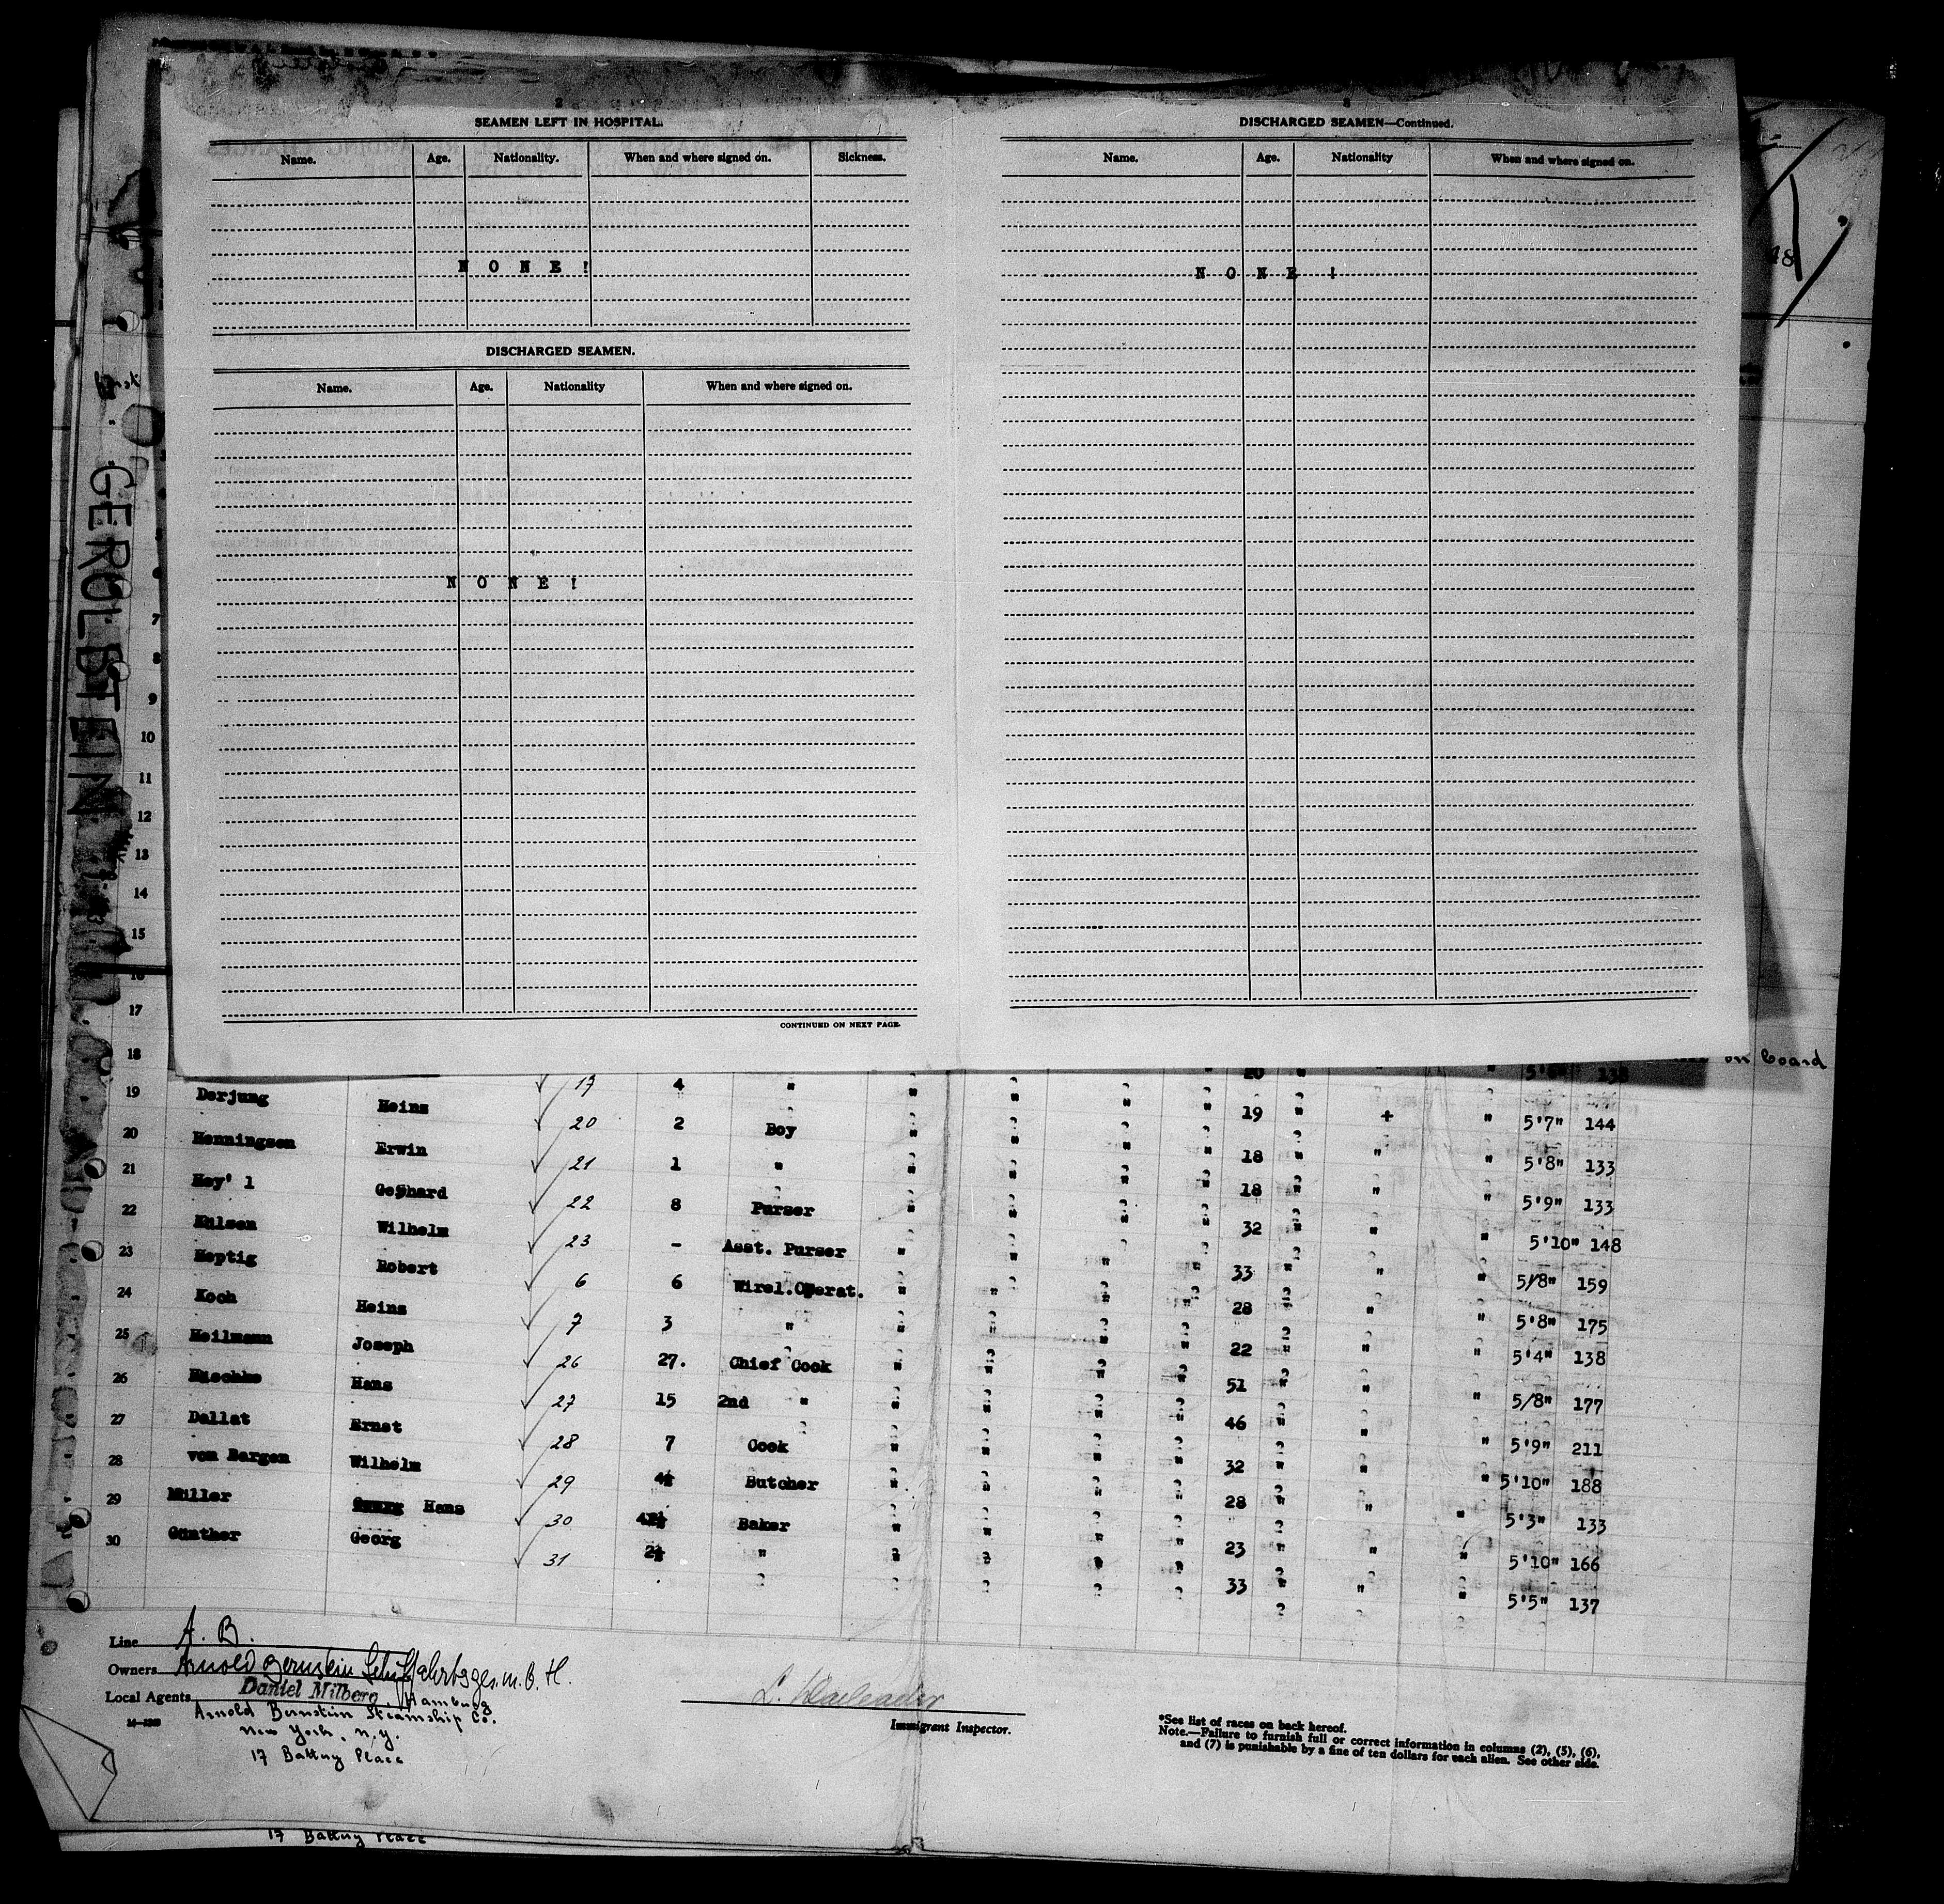 2
SEAMEN LEFT IN HOSPITAL.
Name. Age. Nationality. When and where signed on. Sickness.
N O N E !
DISCHARGED SEAMEN.
Name. Age. Nationality When and where signed on.
N O N E !
CONTINUED ON NEXT PAGE.
3
DISCHARGED SEAMEN—Continued.
Name. Age. Nationality When and where signed on.
N O N E !
GEROLSTEIN
7
8
9
10
11
12
13
14
15
16
17
18 on board
✓ 17 4 " " " " " 20 " " 5'8"
19 Derjung Heinz ✓ 20 2 Boy " " " " 19 " + " 5'7" 144
20 Henningsen Erwin ✓ 21 1 " " " " " 18 " " " 5'8" 133
21 Hey' l Gerhard ✓ 22 8 Purser " " " " 18 " " " 5'9" 133
22 Hülsen Wilhelm ✓ 23 - Asst. Purser " " " " 32 " " " 5'10" 148
23 Heptig Robert ✓ 6 6 Wirel.Operat. " " " " 33 " " " 5/8" 159
24 Koch Heinz ✓ 7 3 " " " " " 28 " " " 5'8" 175
25 Heilmann Joseph ✓ 26 27. Chief Cook " " " " 22 " " " 5'4" 138
26 Nischke Hans ✓ 27 15 2nd " " " " " 51 " " " 5/8" 177
27 Dallat Ernst ✓ 28 7 Cook " " " " 46 " " " 5'9" 211
28 von Bargen Wilhelm ✓ 29 4½ Butcher " " " " 32 " " " 5'10" 188
29 Müller Hans ✓ 30 Baker " " " " 28 " " " 5'3" 133
30 Günther Georg ✓ 31 2½ " " " " " 23 " " " 5'10" 166
33 " " " 5'5" 137
Line A. B.
Owners Arnold Bernstein Schiffahrtsges. m. B. H.
Hamburg
Local Agents Daniel Milberg
Arnold Bernstein Steamship Co.
New York, N.Y.
17 Battery Place
Immigrant Inspector.
*See list of races on back hereof.
Note.—Failure to furnish full or correct information in columns (2), (5), (6),
and (7) is punishable by a fine of ten dollars for each alien. See other side.
17 Battery Place